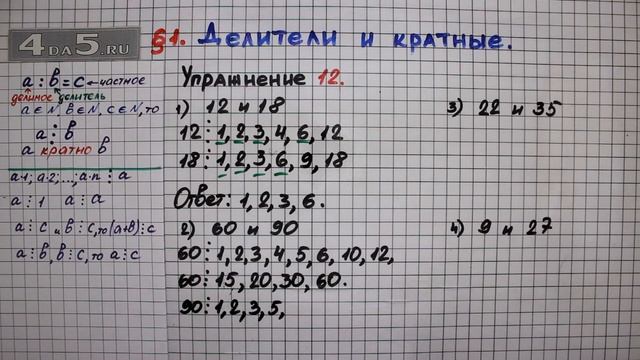 4DA5.RU
§1. Делители и кратные.
a : b = c ← частное
делимое делитель
a ∈ N, b ∈ N, c ∈ N, то
a ⋮ b
a кратно b
a·1; a·2; ...; a·n ⋮ a
a ⋮ 1 a ⋮ a
a ⋮ c и b ⋮ c, то (a+b) ⋮ c
a ⋮ b, b ⋮ c, то a ⋮ c
Упражнение 12.
1) 12 и 18
12 ⋮ 1, 2, 3, 4, 6, 12
18 ⋮ 1, 2, 3, 6, 9, 18
Ответ: 1, 2, 3, 6.
2) 60 и 90
60 ⋮ 1, 2, 3, 4, 5, 6, 10, 12,
60 ⋮ 15, 20, 30, 60.
90 ⋮ 1, 2, 3, 5,
3) 22 и 35
4) 9 и 27